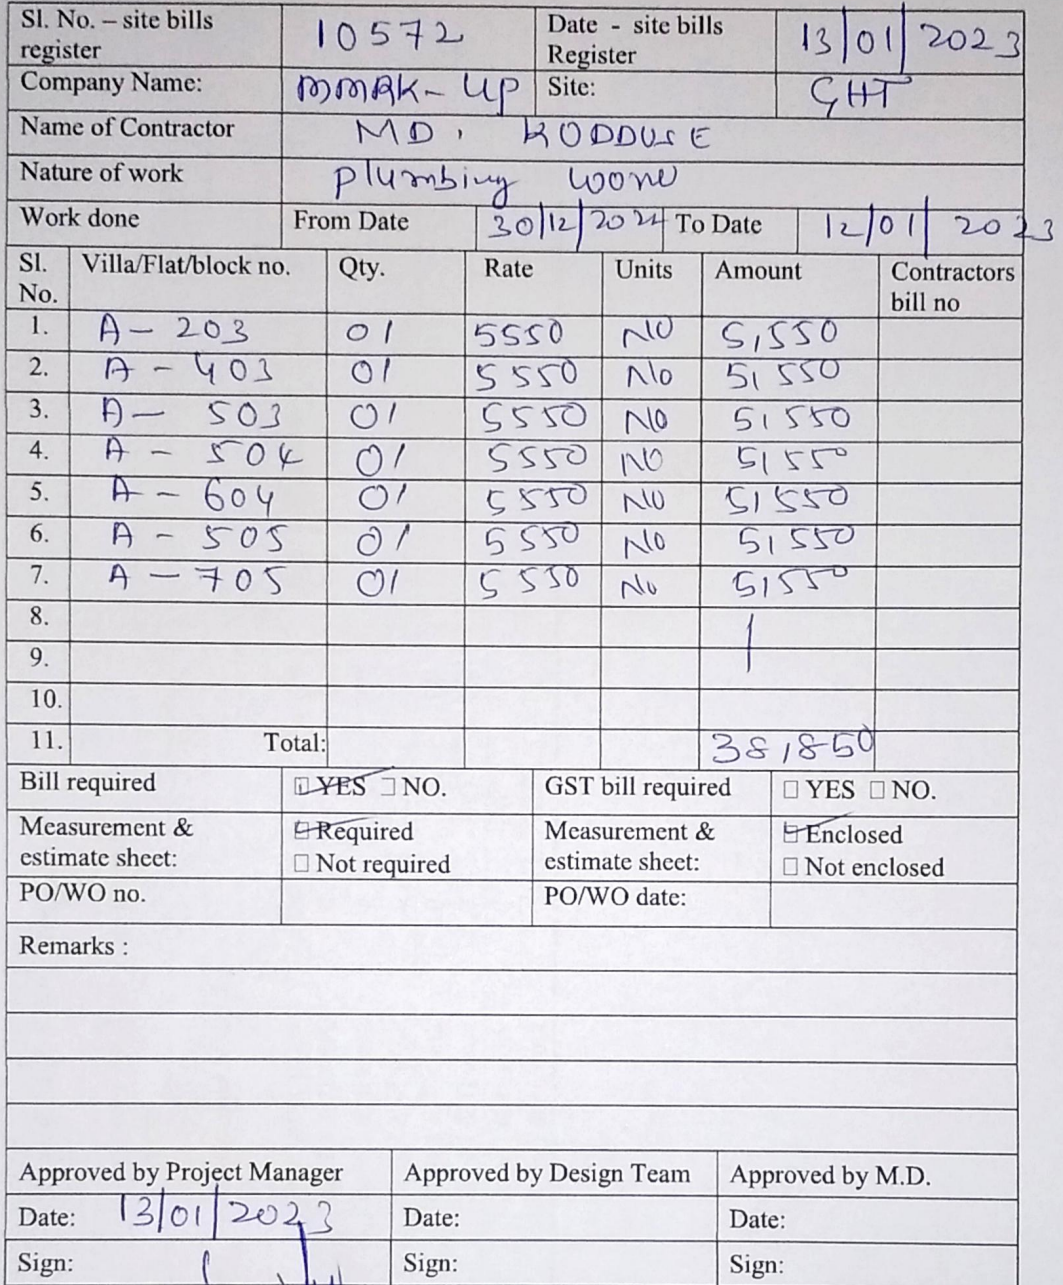 Sl. No. – site bills register 10572 Date - site bills Register 13/01/2023
Company Name: MMRK-UP Site: GHT
Name of Contractor MD. KODDUSE
Nature of work plumbing
Work done From Date 30/12/2022 To Date 12/01/2023
Sl. No. Villa/Flat/block no. Qty. Rate Units Amount Contractors bill no
1. A- 203 01 5550 NO 5,550
2. A - 403 01 5550 No 5,550
3. A- 503 01 5550 NO 5,550
4. A - 504 01 5550 NO 5,550
5. A - 604 01 5550 NO 5,550
6. A - 505 01 5550 No 5,550
7. A - 705 01 5550 No 5,550
8.
9.
10.
11. Total: 38,850
Bill required YES NO. GST bill required YES NO.
Measurement & estimate sheet: Required Measurement & estimate sheet: Enclosed
Not required Not enclosed
PO/WO no. PO/WO date:
Remarks :
Approved by Project Manager Approved by Design Team Approved by M.D.
Date: 13/01/2023 Date: Date:
Sign: Sign: Sign: